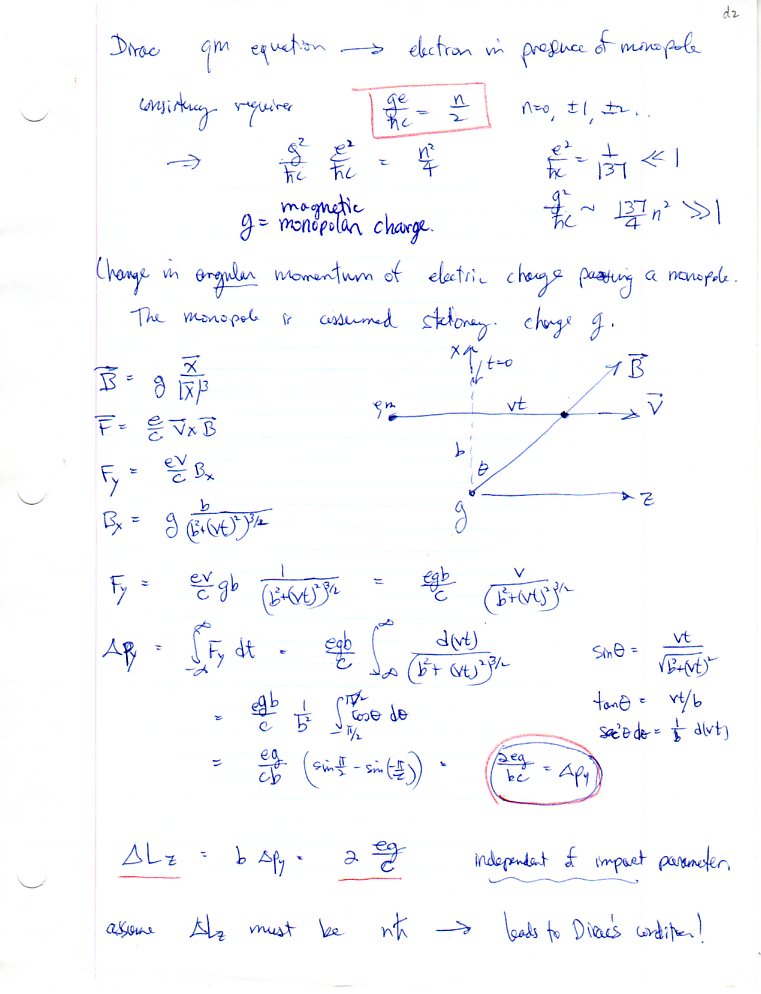 d2
Dirac qm equation → electron in presence of monopole
consistency requires ge/ħc = n/2 n=0, ±1, ±2...
⇒ g²/ħc e²/ħc = n²/4 e²/ħc = 1/137 ≪ 1
g²/ħc ~ 137/4 n² ≫ 1
g = magnetic monopolar charge.
Change in angular momentum of electric charge passing a monopole.
The monopole is assumed stationey. charge g.
x t=0 B⃗
B⃗ = g x⃗/|x⃗|³
e, m vt v⃗
F⃗ = e/c v⃗ x B⃗
b θ
F_y = ev/c B_x
g z
B_x = g b/(b²+(vt)²)^3/2
F_y = ev/c gb 1/(b²+(vt)²)^3/2 = egb/c v/(b²+(vt)²)^3/2
Δp_y = ∫_-∞^∞ F_y dt = egb/c ∫_-∞^∞ d(vt)/(b²+(vt)²)^3/2 sinθ = vt/√b²+(vt)²
= egb/c 1/b² ∫_-π/2^π/2 cosθ dθ tanθ = vt/b
sec²θ dθ = 1/b d(vt)
= eg/cb (sin π/2 - sin(-π/2)) = 2eg/bc = Δp_y
ΔL_z = b Δp_y = 2 eg/c independent of impact parameter.
assume ΔL_z must be nħ → leads to Dirac's condition!